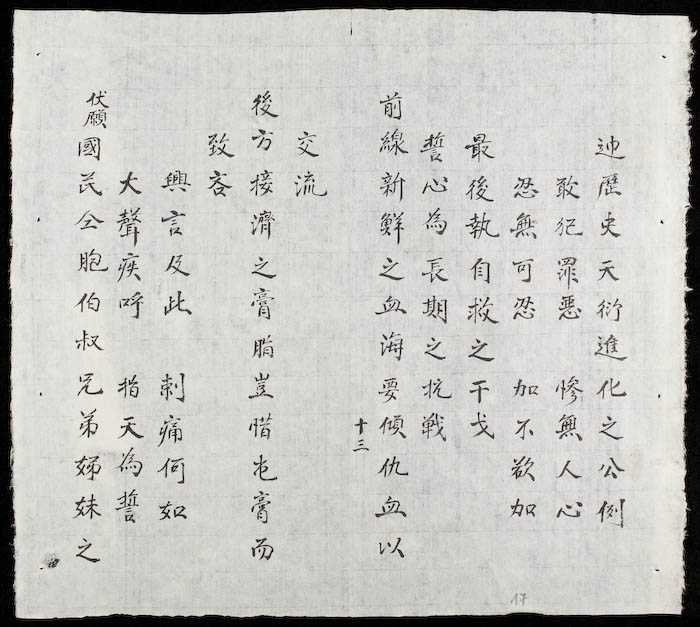 迎歷史天衍進化之公例
敢犯罪惡 慘無人心
忍無可忍 加不欲加
最後執自救之干戈
誓心為長期之抗戰
十三
前線新鮮之血海要傾仇血以
交流
後方接濟之膏脂豈惜屯膏而
致吝
興言及此 刺痛何如
大聲疾呼 指天為誓
伏願國民仝胞伯叔兄弟姊妹之
17